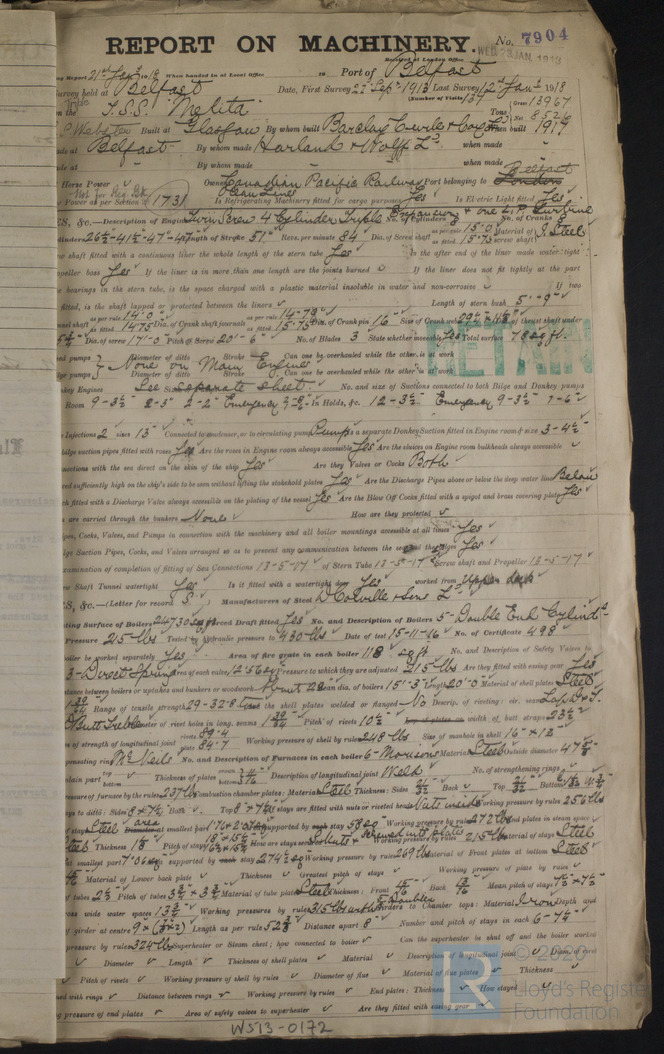 REPORT ON MACHINERY. No. 7904
Received at London Office WED. 23 JAN. 1918
Report 21st Jany 1918 When handed in at Local Office 19 Port of Belfast
Survey held at Belfast Date, First Survey 22 Sept 1913 Last Survey 12th Jany 1918
(Number of Visits 134
on the Triple T.S.S. "Melita" Tons Gross 13967 Net 8526
Built at Glasgow By whom built Barclay Curle & Coy Ld When built 1917
made at Belfast By whom made Harland & Wolff Ld when made
made at By whom made when made
Horse Power Owners Canadian Pacific Railway Ocean Lines Port belonging to Belfast London
Power as per Section 1731 Is Refrigerating Machinery fitted for cargo purposes Yes Is Electric Light fitted Yes
ES, &c.—Description of Engines Twin Screw 4 Cylinder Triple Expansion & one L.P. Turbine
Cylinders 26½"-41½"-47"-47" Length of Stroke 51" Revs. per minute 84 Dia. of Screw shaft as per rule 15·0" as fitted 15·75" Material of screw shaft I Steel
shaft fitted with a continuous liner the whole length of the stern tube Yes Is the after end of the liner made water tight
propeller boss Yes If the liner is in more than one length are the joints burned If the liner does not fit tightly at the part
bearings in the stern tube, is the space charged with a plastic material insoluble in water and non-corrosive If two
fitted, is the shaft lapped or protected between the liners Length of stern bush 5'-9"
shaft as per rule 14·0" as fitted 14·75 Dia. of Crank shaft journals as per rule 14·79" as fitted 15·75" Dia. of Crank pin 16" Size of Crank webs Dia. of thrust shaft under
Dia. of screw 17'-0" Pitch of Screw 20'-6" No. of Blades 3 State whether moveable Yes Total surface 78 sq ft.
Feed pumps Diameter of ditto Stroke Can one be overhauled while the other is at work
Bilge pumps None on Main Engines Diameter of ditto Stroke Can one be overhauled while the other is at work
Donkey Engines See separate sheet. No. and size of Suctions connected to both Bilge and Donkey pumps
Room 9-3½" 2-3" 2-2" Emergency In Holds, &c. 12-3½" Emergency 9-3½" 7-6"
Injections 2 sizes 13" Connected to condenser, or to circulating pump Pumps Is a separate Donkey Suction fitted in Engine room & size 3-4½"
bilge suction pipes fitted with roses Yes Are the roses in Engine room always accessible Yes Are the sluices on Engine room bulkheads always accessible
connections with the sea direct on the skin of the ship Yes Are they Valves or Cocks Both
fixed sufficiently high on the ship's side to be seen without lifting the stokehold plates Yes Are the Discharge Pipes above or below the deep water line Below
each fitted with a Discharge Valve always accessible on the plating of the vessel Yes Are the Blow Off Cocks fitted with a spigot and brass covering plate Yes
are carried through the bunkers None How are they protected
Pipes, Cocks, Valves, and Pumps in connection with the machinery and all boiler mountings accessible at all times Yes
Bilge Suction Pipes, Cocks, and Valves arranged so as to prevent any communication between the sea and the bilges Yes
examination of completion of fitting of Sea Connections 13-5-17 of Stern Tube 13-5-17 Screw shaft and Propeller 13-5-17
Screw Shaft Tunnel watertight Yes Is it fitted with a watertight door Yes worked from Upper deck
RS, &c.—(Letter for record S.) Manufacturers of Steel D. Colville & Sons Ld
Heating Surface of Boilers 24730 sq ft Forced Draft fitted Yes No. and Description of Boilers 5-Double End Cylindl
Pressure 215 lbs Tested by hydraulic pressure to 430 lbs Date of test 15-11-16 No. of Certificate 498
boiler be worked separately Yes Area of fire grate in each boiler 118 sq ft No. and Description of Safety Valves to
3-Direct Spring Area of each valve 12·56 sq" Pressure to which they are adjusted 215 lbs Are they fitted with easing gear Yes
distance between boilers or uptakes and bunkers or woodwork About 22" Mean dia. of boilers 15'-3" Length 20'-0" Material of shell plates Steel
Range of tensile strength 29-32·8 Are the shell plates welded or flanged No Descrip. of riveting: cir. seams Lap D & T.
D Butt Treble Diameter of rivet holes in long. seams 1 39/64 Pitch of rivets 10½" Lap of plates or width of butt straps 23½"
of strength of longitudinal joint rivets 89·4 plate 84·7 Working pressure of shell by rules 248 lbs Size of manhole in shell 16" × 12"
compensating ring McNeils No. and Description of Furnaces in each boiler 6-Morison Material Steel Outside diameter
plain part top bottom Thickness of plates crown bottom Description of longitudinal joint Weld No. of strengthening rings
pressure of furnace by the rules 237 lbs Combustion chamber plates: Material Steel Thickness: Sides Back Top Bottom
stays to ditto: Sides 8 × 7½ Back Top 8" × 7½" If stays are fitted with nuts or riveted heads Nuts inside Working pressure by rules 256 lbs
stays Steel area Diameter at smallest part Area supported by each stay 58 sq" Working pressure by rules 272 lbs End plates in steam space
Steel Thickness Pitch of stays How are stays secured Working pressure by rules 215 lbs Material of stays Steel
at smallest part 7·06 sq" supported by each stay 274½ sq" Working pressure by rules 269 lbs Material of Front plates at bottom Steel
Material of Lower back plate Thickness Greatest pitch of stays Working pressure of plate by rules
of tubes 2½" Pitch of tubes 3¾" × 3¾" Material of tube plates Steel Thickness: Front Back Mean pitch of stays 7½" × 7½"
across wide water spaces 13¾" Working pressures by rules 315 lbs Girders to Chamber tops: Material Iron Depth and
of girder at centre Length as per rule Distance apart 8" Number and pitch of stays in each 6-7½"
pressure by rules 324 lbs Superheater or Steam chest; how connected to boiler Can the superheater be shut off and the boiler worked
Diameter Length Thickness of shell plates Material Description of longitudinal joint Diam. of rivet
Pitch of rivets Working pressure of shell by rules Diameter of flue Material of flue plates Thickness
with rings Distance between rings Working pressure by rules End plates: Thickness How stayed
pressure of end plates Area of safety valves to superheater Are they fitted with easing gear
RETAIN
W513-0172
LR
© 2020
Lloyd's Register
Foundation